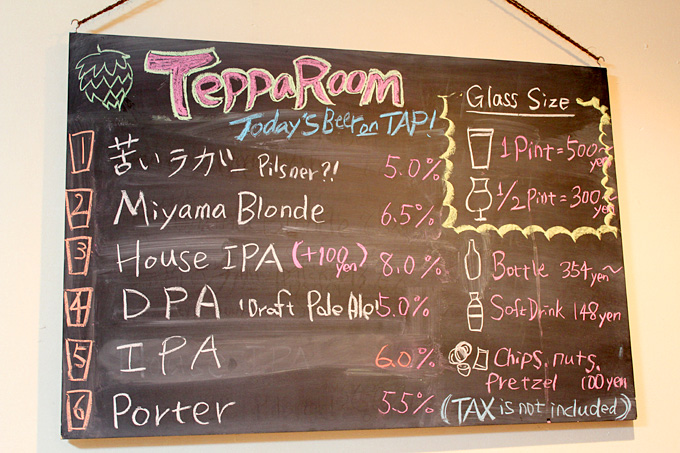 TEPPA ROOM
Today's Beer on TAP!
1 苦いラガー Pilsner?! 5.0%
2 Miyama Blonde 6.5%
3 House IPA (+100yen) 8.0%
4 DPA 'Draft Pale Ale' 5.0%
5 IPA 6.0%
6 Porter 5.5%
Glass Size
1 Pint = 500~ yen
1/2 Pint = 300~ yen
Bottle 354yen~
Soft Drink 148yen
Chips, nuts,
Pretzel 100yen
(TAX is not included)